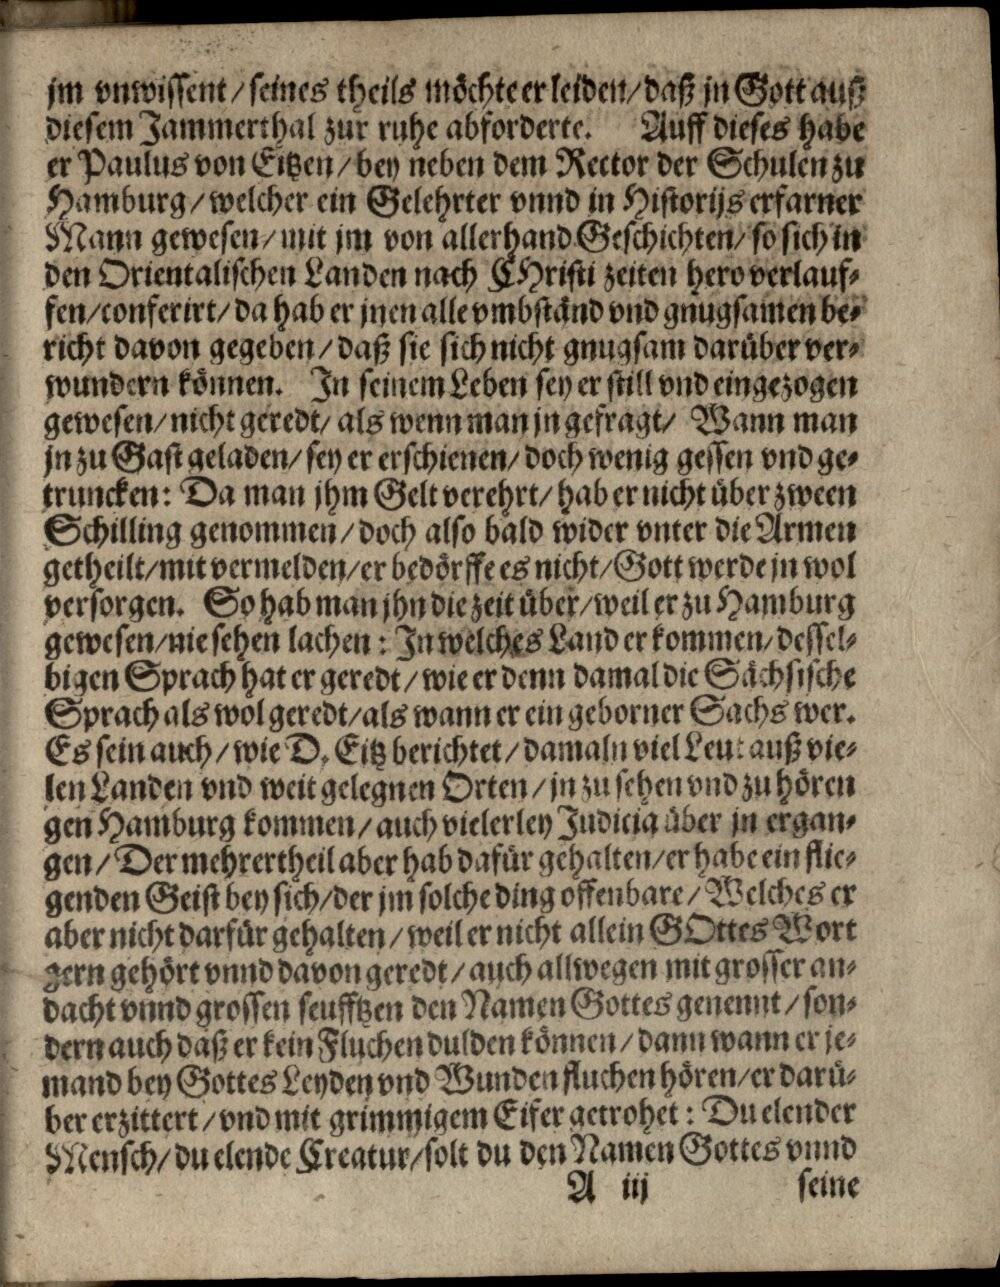 jm vnwissent / seines theils möchte er leiden / daß jn Gott auß
diesem Jammerthal zur ruhe abforderte. Auff dieses habe
er Paulus von Eitzen / bey neben dem Rector der Schulen zu
Hamburg / welcher ein Gelehrter vnnd in Historijs erfarner
Mann gewesen / mit jm von allerhand Geschichten / so sich in
den Orientalischen Landen nach CHristi zeiten hero verlauf-
fen / conferirt / da hab er jnen alle vmbständ vnd gnugsamen be-
richt davon gegeben / daß sie sich nicht gnugsam darüber ver-
wundern können. In seinem Leben sey er still vnd eingezogen
gewesen / nicht geredt / als wenn man jn gefragt / Wann man
jn zu Gast geladen / sey er erschienen / doch wenig gessen vnd ge-
truncken: Da man jhm Gelt verehrt / hab er nicht über zween
Schilling genommen / doch also bald wider vnter die Armen
getheilt / mit vermelden / er bedörffe es nicht / Gott werde jn wol
versorgen. So hab man jhn die zeit über / weil er zu Hamburg
gewesen / nie sehen lachen: In welches Land er kommen / dessel-
bigen Sprach hat er geredt / wie er denn damal die Sächsische
Sprach als wol geredt / als wann er ein geborner Sachs wer.
Es sein auch / wie D. Eitz berichtet / damaln viel Leut auß vie-
len Landen vnd weit gelegnen Orten / jn zu sehen vnd zu hören
gen Hamburg kommen / auch vielerley Judicia über jn ergan-
gen / Der mehrertheil aber hab dafür gehalten / er habe ein flie-
genden Geist bey sich / der jm solche ding offenbare / Welches er
aber nicht darfür gehalten / weil er nicht allein GOttes Wort
gern gehört vnnd davon geredt / auch allwegen mit grosser an-
dacht vnnd grossen seufftzen den Namen Gottes genennt / son-
dern auch daß er kein Fluchen dulden können / dann wann er je-
mand bey Gottes Leyden vnd Wunden fluchen hören / er darü-
ber erzittert / vnd mit grimmigem Eifer getrohet: Du elender
Mensch / du elende Creatur / solt du den Namen Gottes vnnd
A iij seine